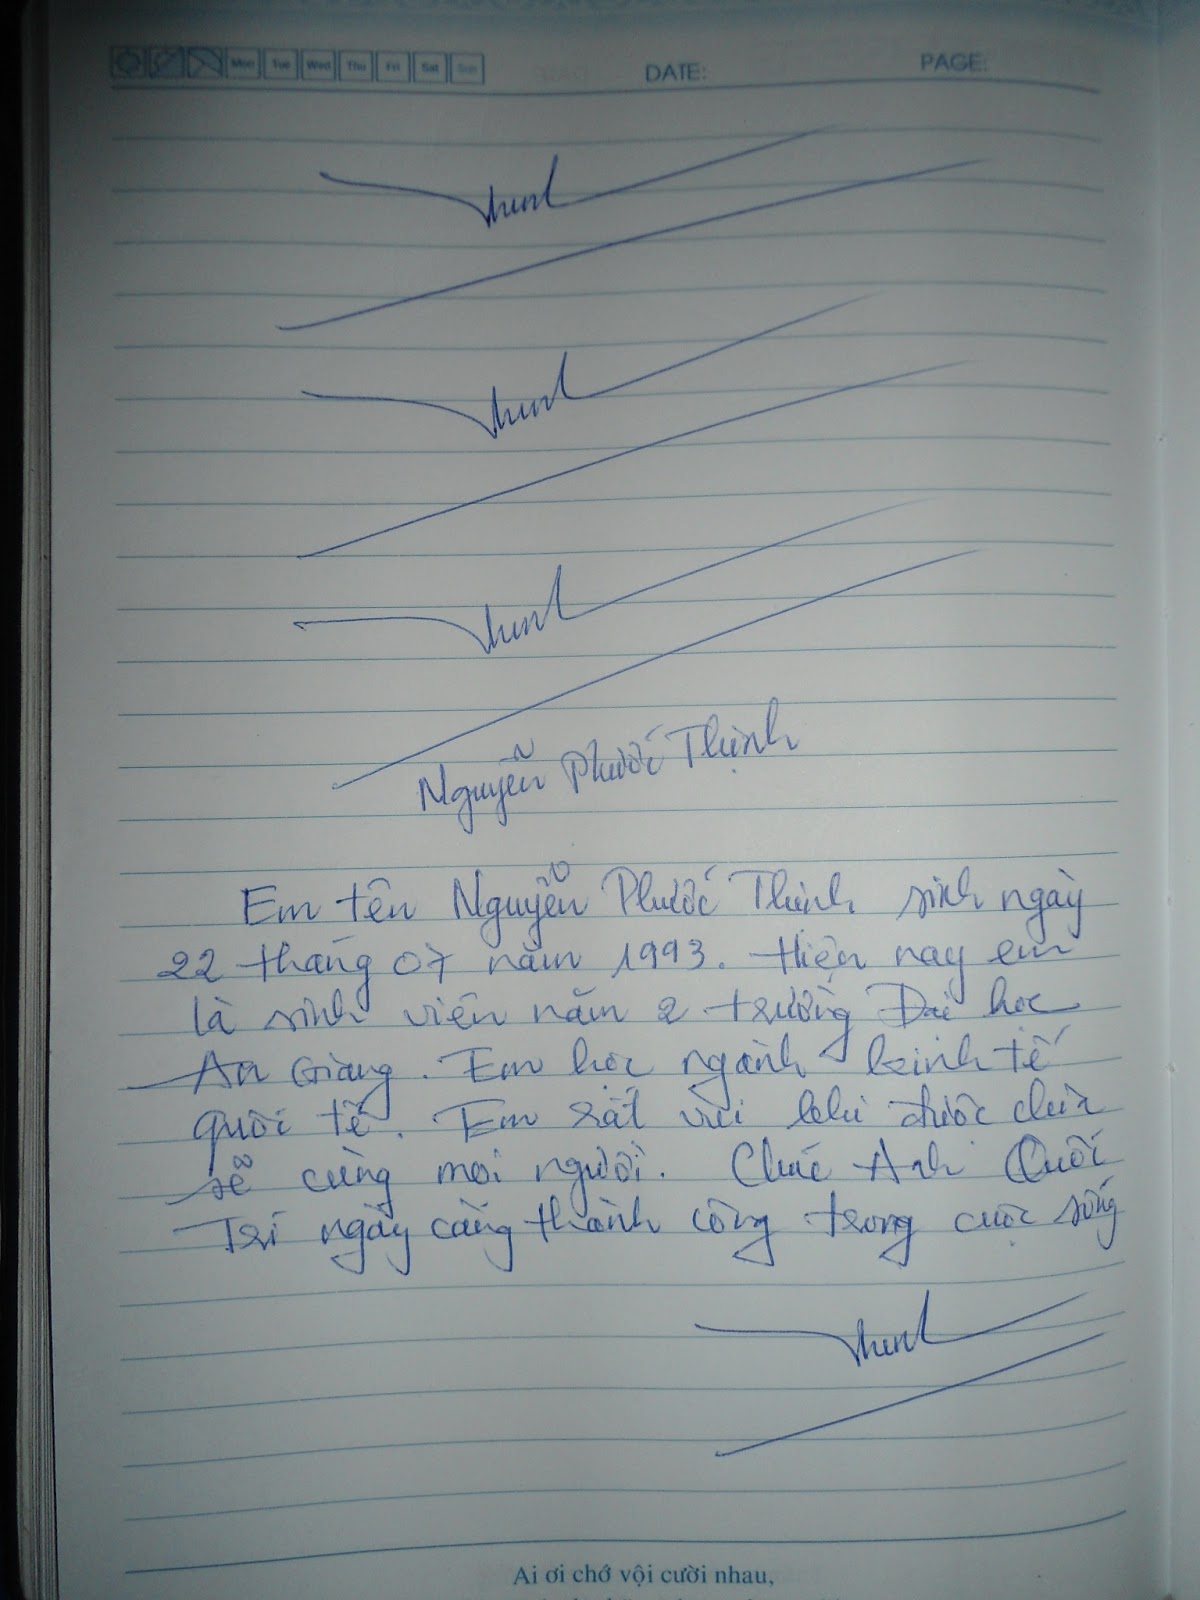 Mon Tue Wed Thu Fri Sat Sun DATE: PAGE:
Thinh
Thinh
Thinh
Nguyễn Phước Thịnh
Em tên Nguyễn Phước Thịnh sinh ngày
22 tháng 07 năm 1993. Hiện nay em
là sinh viên năm 2 trường Đại học
An Giang. Em học ngành kinh tế
quốc tế. Em rất vui khi được chia
sẽ cùng mọi người. Chúc Anh Quốc
Trí ngày càng thành công trong cuộc sống
Thinh
Ai ơi chớ vội cười nhau,